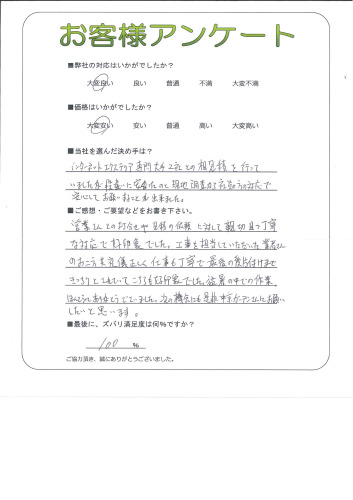 お客様アンケート
■弊社の対応はいかがでしたか？
大変良い 良い 普通 不満 大変不満
■価格はいかがでしたか？
大変安い 安い 普通 高い 大変高い
■当社を選んだ決め手は？
インターネットエクステリア専門大手2社との相見積を行って
いましたが 段違いに安価だったのと現地調査など 対応で
安心してお願いすることが出来ました。
■ご感想・ご要望などをお書き下さい。
営業さんとの打合せや見積の依頼に対して親切且つ丁寧
な対応で好印象でした。工事を担当していただいた業者さん
のお二方も礼儀正しく仕事も丁寧で最後の後片付けまで
きっちりとされていてこちらも好印象でした。猛暑の中での作業
ほんとうにありがとうございました。次の機会にも是非 さんにお願い
したいと思います。
■最後に、ズバリ満足度は何%ですか？
100 %
ご協力頂き、誠にありがとうございました。